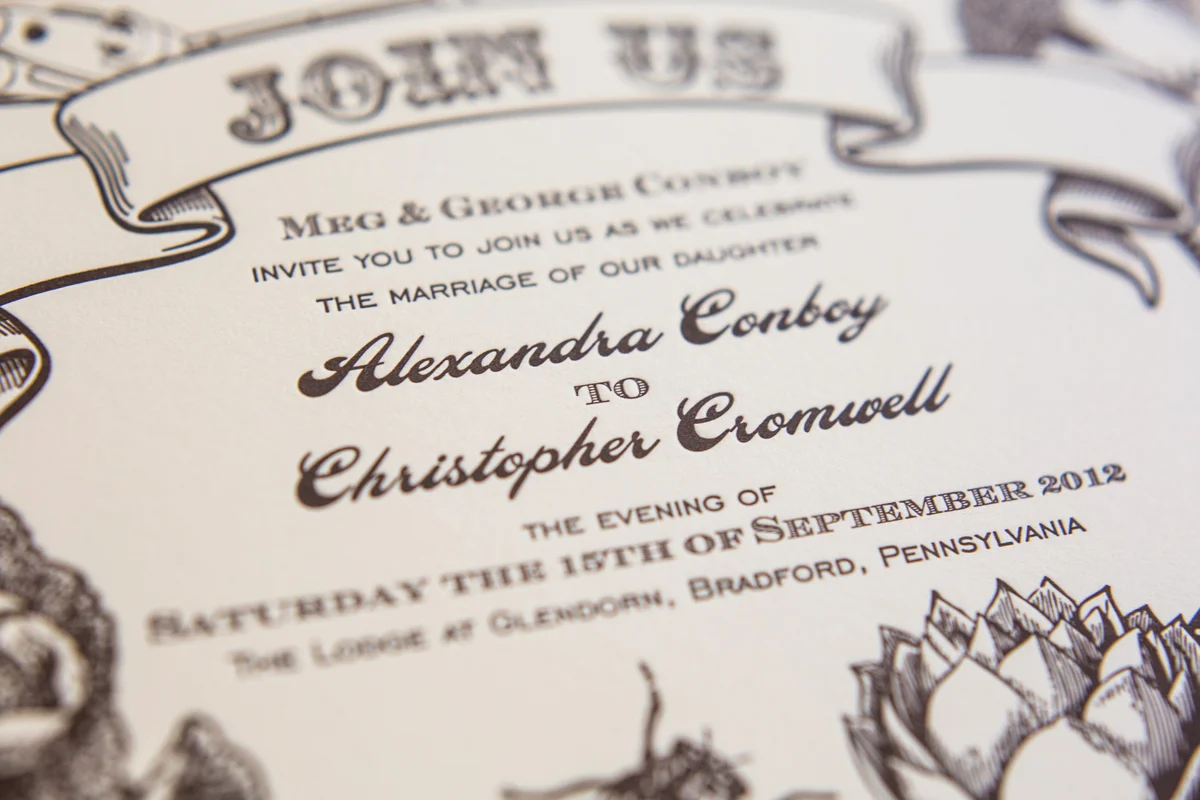 JOIN US
MEG & GEORGE CONBOY
INVITE YOU TO JOIN US AS WE CELEBRATE
THE MARRIAGE OF OUR DAUGHTER
Alexandra Conboy
TO
Christopher Cromwell
THE EVENING OF
SATURDAY THE 15TH OF SEPTEMBER 2012
THE LODGE AT GLENDORN, BRADFORD, PENNSYLVANIA